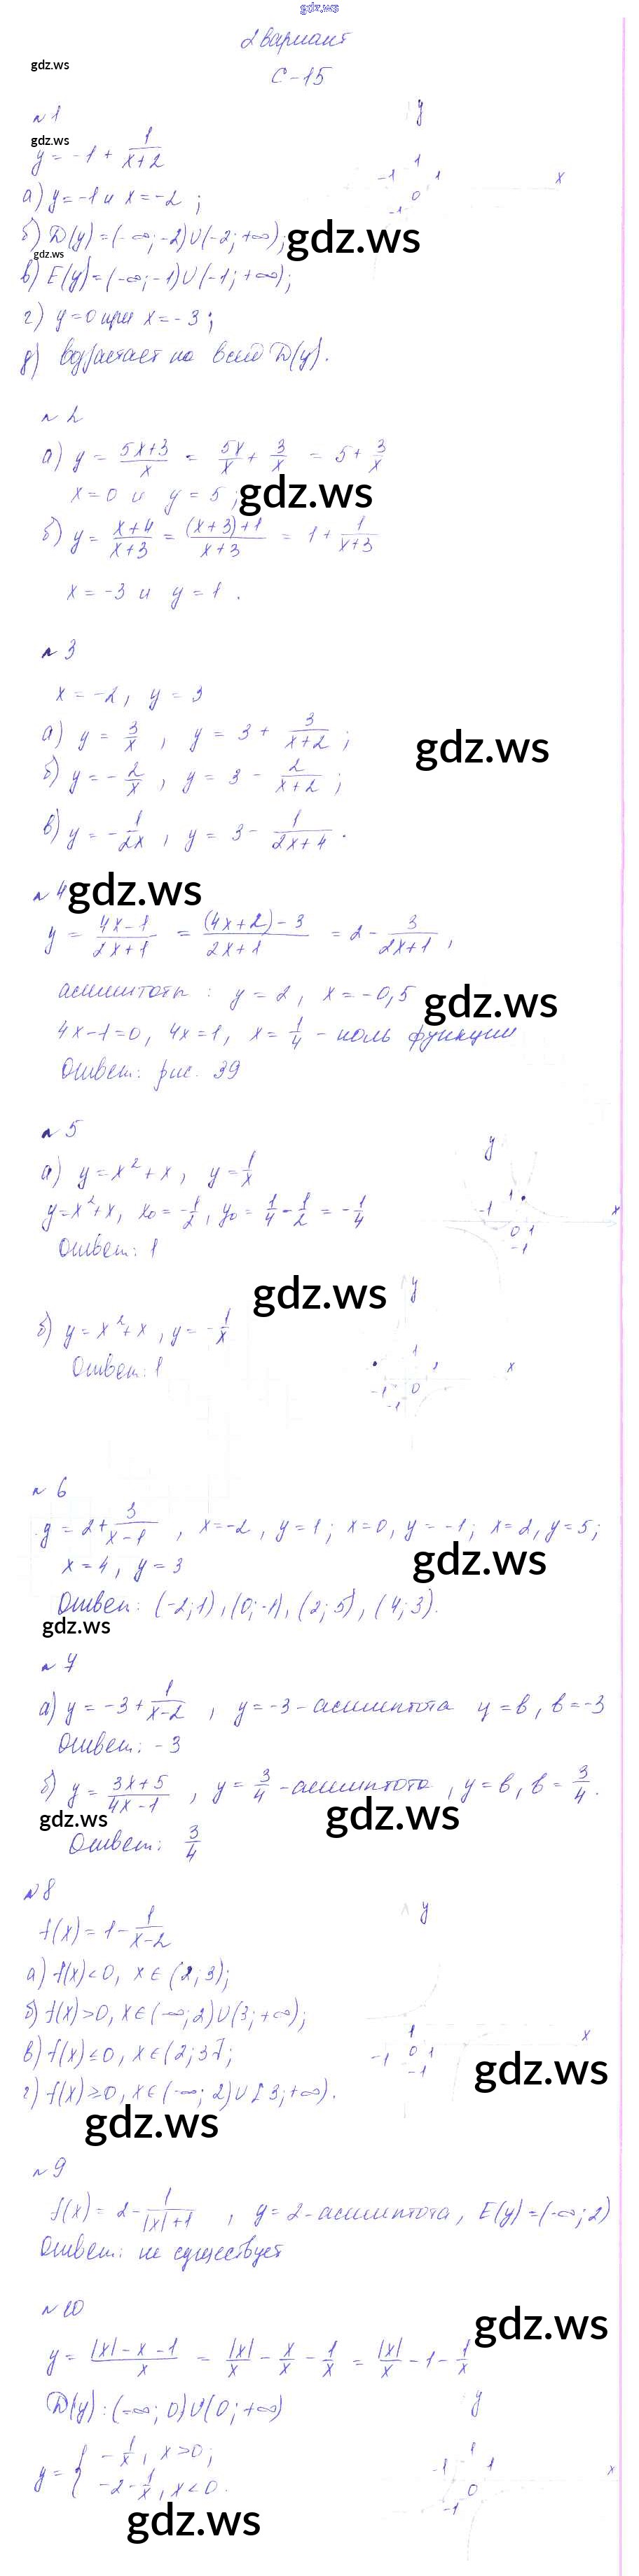 gdz.ws
2 вариант
gdz.ws
С-15
№1
gdz.ws
y = -1 + 1/(x+2)
y
1
-1 1 x
0
-1
а) y = -1 и x = -2 ;
б) D(y) = (-∞; -2)∪(-2; +∞);
gdz.ws
gdz.ws
в) E(y) = (-∞; -1)∪(-1; +∞);
г) y = 0 при x = -3 ;
д) возрастает на всей D(y).
№2
а) y = (5x+3)/x = 5x/x + 3/x = 5 + 3/x
x = 0 и y = 5 ;
gdz.ws
б) y = (x+4)/(x+3) = ((x+3)+1)/(x+3) = 1 + 1/(x+3)
x = -3 и y = 1 .
№3
x = -2, y = 3
а) y = 3/x , y = 3 + 3/(x+2) ;
gdz.ws
б) y = -2/x , y = 3 - 2/(x+2) ;
в) y = -1/2x , y = 3 - 1/(2x+4) .
№4
gdz.ws
y = (4x-1)/(2x+1) = ((4x+2)-3)/(2x+1) = 2 - 3/(2x+1) ,
асимптоты : y = 2, x = -0,5
gdz.ws
4x-1=0, 4x=1, x = 1/4 - ноль функции
Ответ: рис. 39
№5
а) y = x²+x, y = 1/x
y = x²+x, x₀ = -1/2, y₀ = 1/4 - 1/2 = -1/4
Ответ: 1
y
1
-1 x
0 1
-1
gdz.ws
б) y = x²+x, y = -1/x
Ответ: 1
y
1
1 x
-1 0
-1
№6
y = 2 + 3/(x-1) , x=-2, y=1; x=0, y=-1; x=2, y=5;
x=4, y=3
gdz.ws
Ответ: (-2;1), (0;-1), (2;5), (4;3).
gdz.ws
№7
а) y = -3 + 1/(x-2) , y = -3 - асимптота y = в, в = -3
Ответ: -3
б) y = (3x+5)/(4x-1) , y = 3/4 - асимптота, y = в, в = 3/4 .
gdz.ws
gdz.ws
Ответ: 3/4
№8
f(x) = 1 - 1/(x-2)
а) f(x)<0, x∈(2;3);
б) f(x)>0, x∈(-∞;2)∪(3;+∞);
в) f(x)≤0, x∈(2;3];
г) f(x)≥0, x∈(-∞;2)∪[3;+∞).
y
1 x
-1 0 1
-1
gdz.ws
gdz.ws
№9
f(x) = 2 - 1/(|x|+1) , y = 2 - асимптота, E(y) = (-∞;2)
Ответ: не существует
№10
gdz.ws
y = (|x|-x-1)/x = |x|/x - x/x - 1/x = |x|/x - 1 - 1/x
D(y): (-∞; 0)∪(0; +∞)
y = { -1/x, x>0;
-2-1/x, x<0.
y
1
-1 1 x
0
-1
gdz.ws